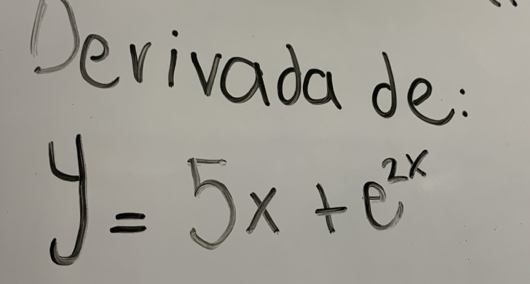 Derivada de:
y = 5x + e^{2x}